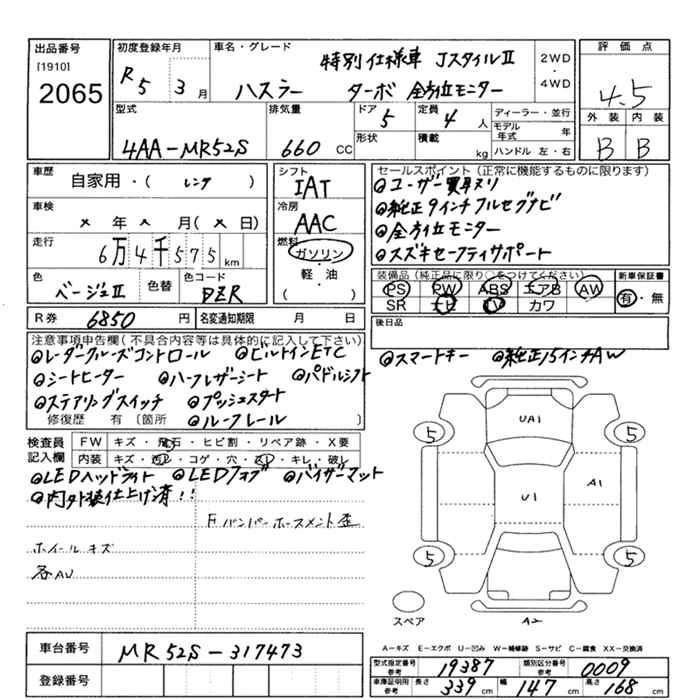 出品番号
[1910]
2065
初度登録年月
R5 3月
車名・グレード
特別仕様車 JスタイルⅡ
ハスラー ターボ 全方位モニター
2WD
・
4WD
評価点
4.5
外装 内装
B B
型式
4AA-MR52S
排気量
660 CC
ドア
5
形状
定員
4 人
積載
kg
ディーラー・並行
モデル年式 年
ハンドル 左・右
車歴
自家用・( レンタ )
車検
× 年 × 月 ( × 日)
走行
6万4千575km
色
ベージュⅡ
色替
色コード
DZR
シフト
IAT
冷房
AAC
燃料
ガソリン
・
軽・油
( )
セールスポイント (正常に機能するものに限ります)
◎ユーザー買取り
◎純正9インチフルセグナビ
◎全方位モニター
◎スズキセーフティサポート
装備品 (純正品に限り○をつけてください)
PS PW ABS エアB AW
SR ナビ TV カワ
新車保証書
有・無
R券 6850 円
名変通知期限 月 日
後日品
◎スマートキー ◎純正15インチAW
注意事項申告欄 (不具合内容等は具体的に記入して下さい)
◎レーダークルーズコントロール ◎ビルトインETC
◎シートヒーター ◎ハーフレザーシート ◎パドルシフト
◎ステアリングスイッチ ◎プッシュスタート
修復歴 有 [箇所 ◎ルーフレール ]
検査員記入欄
FW キズ・飛石・ヒビ割・リペア跡・X要
内装 キズ・汚レ・コゲ・穴・スレ・キレ・破レ
◎LEDヘッドライト ◎LEDフォグ ◎バイザーマット
◎内外装仕上げ済!!
Fバンパーホースメント歪
ホイールキズ
各AU
UA1
U1
A1
A2
5
5
5
5
スペア
A=キズ E=エクボ U=凹み W=補修跡 S=サビ C=腐食 XX=交換済
車台番号
MR52S-317473
登録番号
型式指定番号 参考 19387
類別区分番号 参考 0009
車庫証明用 参考 長さ 339 cm 幅 147 cm 高さ 168 cm